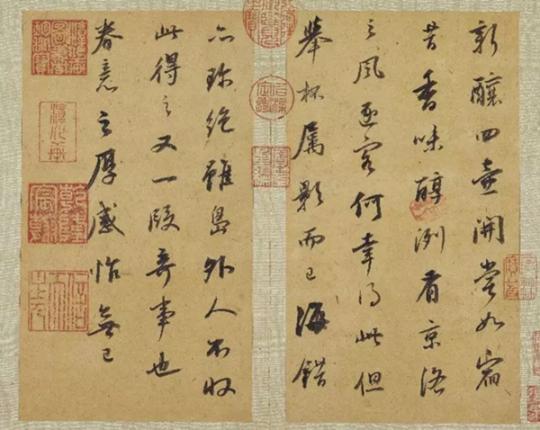 新釀四壺開嘗如宿
昔香味醇洌有京洛
之風逐客何幸得此但
舉杯屬影而已海錯
亦珍絕雖島外人不收
此得之又一段奇事也
眷意之厚感怍無已
乾隆